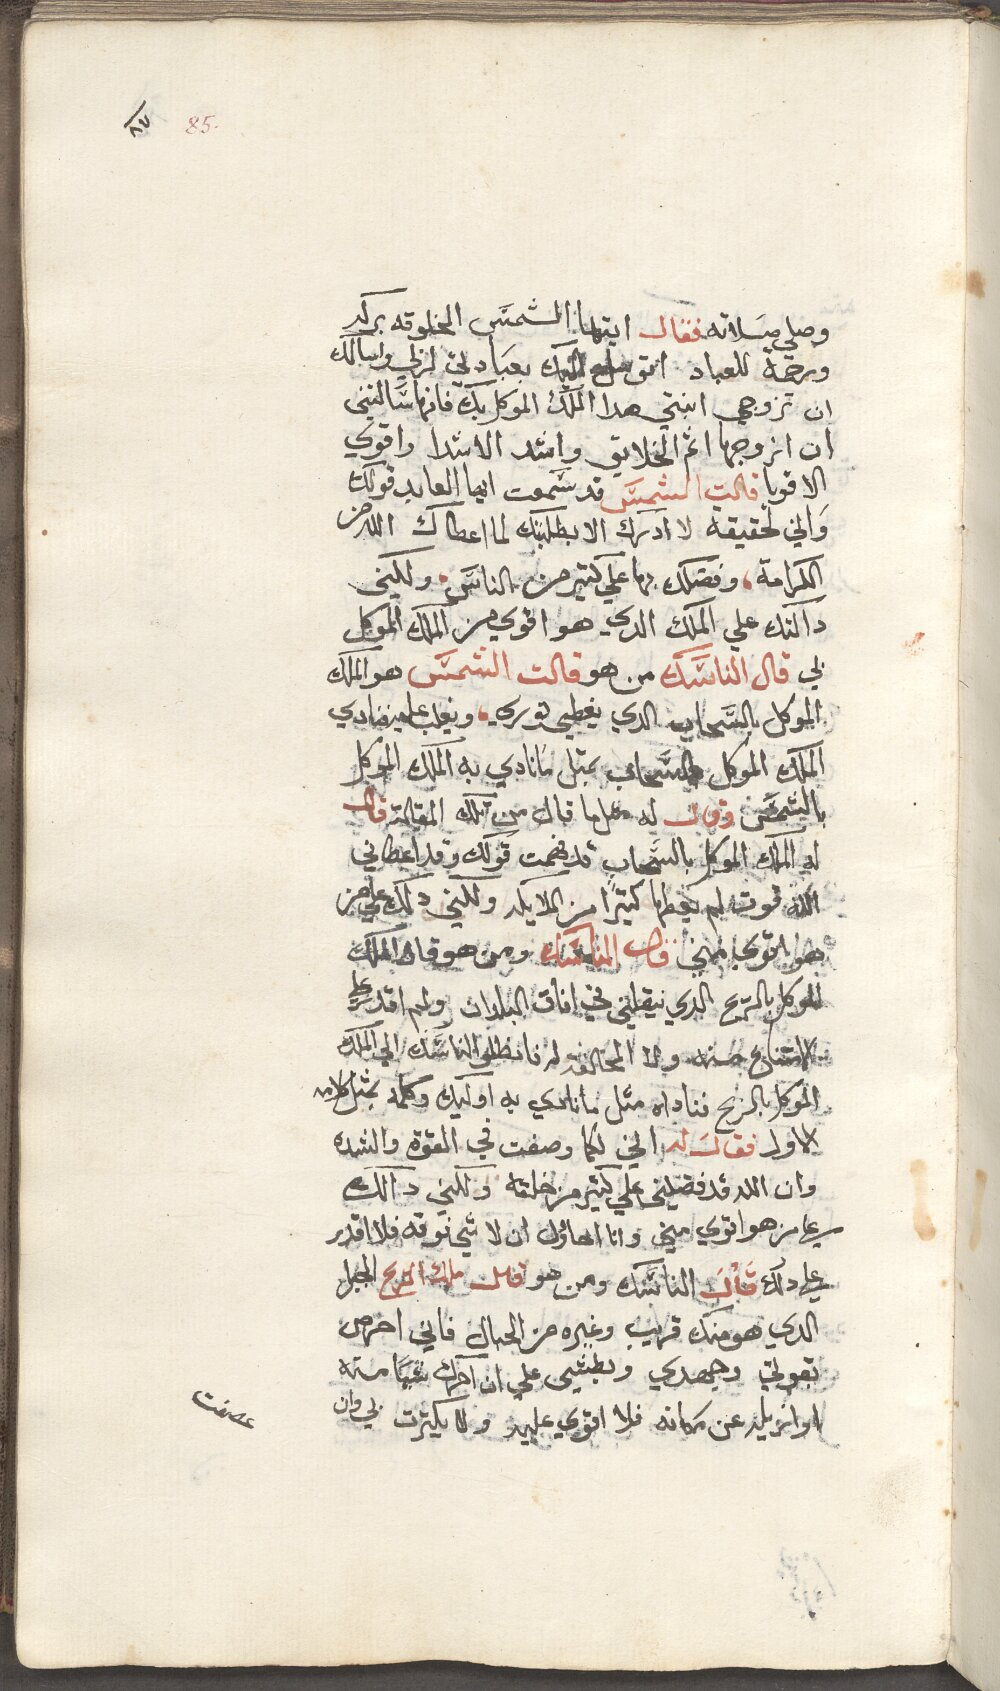 ٨٧ 85.
وصلي صلاته فقال ايتها الشمس المخلوقه بركه
ورحمة للعباد انني اليك بعبادتي لربي واسالك
ان تزوجي ابنتي هدا الملك الموكل بك فانها سالتني
ان ازوجها اتم الخلايق واشد الاشدا واقوي
الاقويا قالت الشمس قد سمعت ايها العابد قولك
واني لحقيقة لا ادرك الا بطلبتك لما اعطاك الله من
الكرامة، وفضلك بها علي كتير من الناس، ولكني
دالتك علي الملك الدي هو اقوي من الملك الموكل
بي قال الناسك من هو قالت الشمس هو الملك
الموكل بالسحاب الدي يغطي نوري، ويغلب عليه فنادي
الملك الموكل بالسحاب بمتل ما نادي به الملك الموكل
بالشمس وقال له متل ما قال من تلك المقالة قال
له الملك الموكل بالسحاب قد فهمت قولك وقد اعطاني
الله قوت لم يعطها كتيرا من الملايكه ولكني دلك علي من
هو اقوي مني قال الناسك ومن هو قال الملك
الموكل بالريح الدي نيقلني في افاق البلدان ولم اقدر علي
الامتناع منه ولا المخالفه له فانطلق الناسك الي الملك
الموكل بالريح فناداه متل ما نادي به اوليك وكلمه بمتل كلامه
الاول فقال له اني لكما وصفت في القوة والشده
وان الله قد فضلني علي كتير من خلقه ولكني دالك
علي من هو اقوي مني وانا احاول ان لا شي نوقه فلا اقدر
علي دلك قال الناسك ومن هو قال ملك الريح الجبل
الدي هو منك قريب وغيره من الجبال فاني احرص
بقوتي وجهدي وبطشي علي ان احرك شيا منه
او ازيله عن مكانه فلا اقوي عليه ولا يكترت بي وان
عصفت